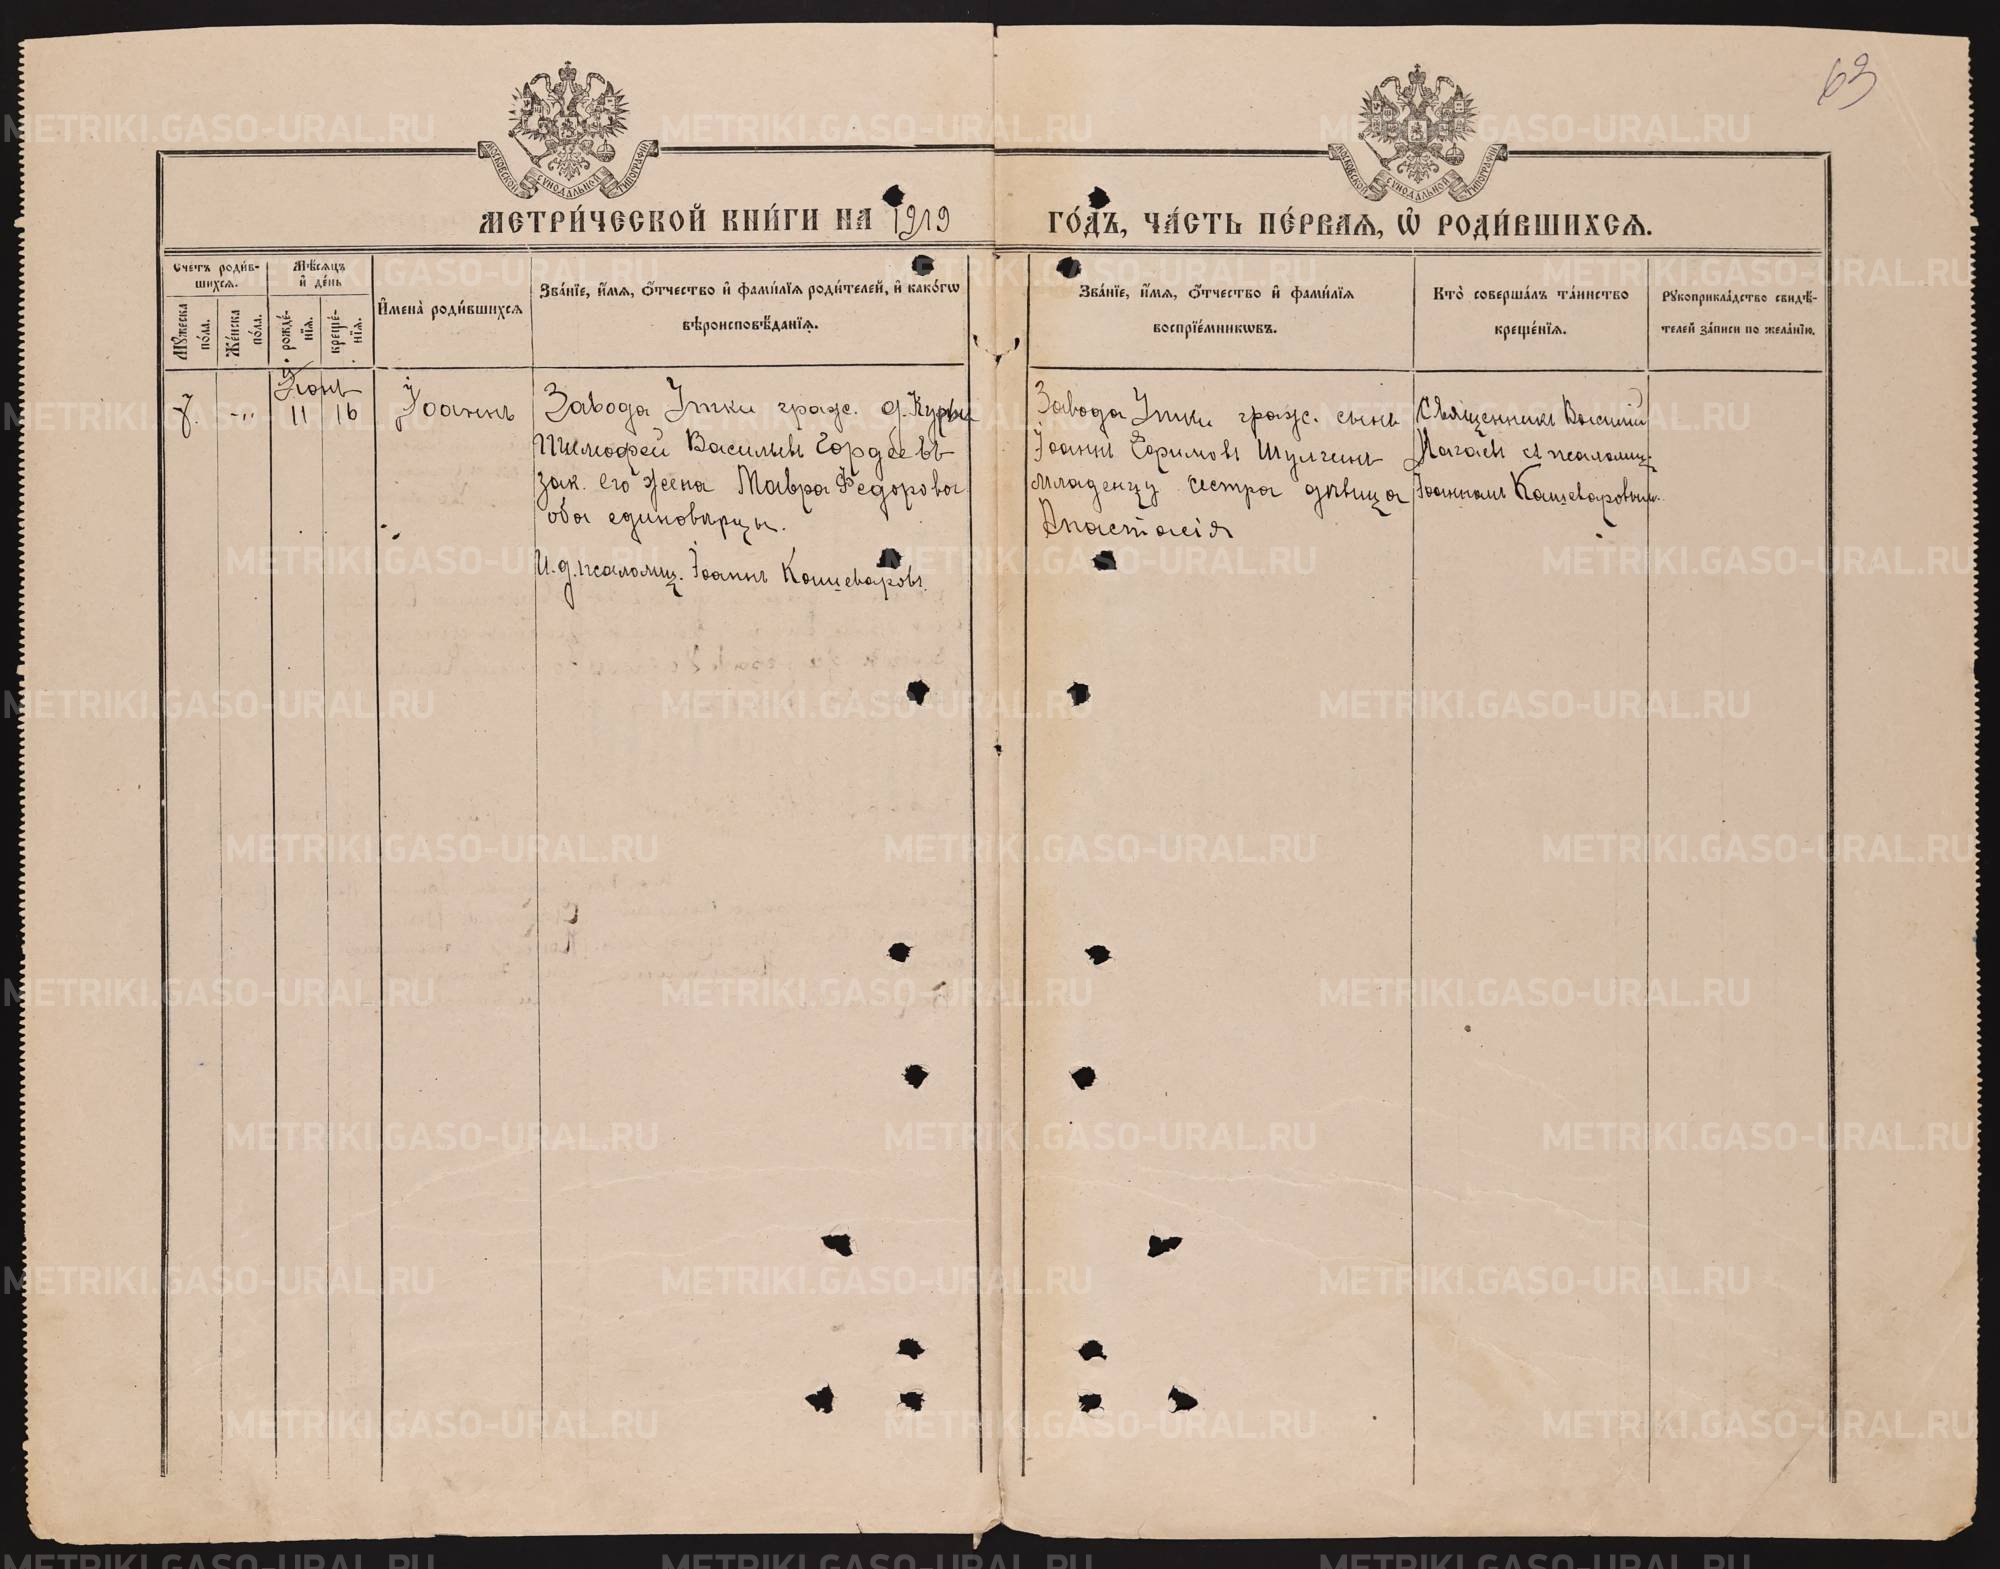 63
МОСКОВСКОЙ СУНОДАЛЬНОЙ ТИПОГРАФИИ
МОСКОВСКОЙ СУНОДАЛЬНОЙ ТИПОГРАФИИ
МЕТРИ́ЧЕСКОЙ КНИ́ГИ НА 1919 ГО́ДЪ, ЧА́СТЬ ПЕ́РВАѦ, Ѽ РОДИ́ВШИХСѦ.
Счетъ роди́в-
шихсѧ.
Мꙋжеска по́ла.
Же́нска по́ла.
Мѣ́сѧцъ
и҆ де́нь
рожде́-
нїѧ.
креще́-
нїѧ.
И҆мена̀ роди́вшихсѧ
Зва́нїе, и҆́мѧ, ѻ҆́тчество и҆ фами́лїѧ роди́телей, и҆ како́гѡ
вѣроисповѣ́данїѧ.
Зва́нїе, и҆́мѧ, ѻ҆́тчество и҆ фами́лїѧ
воспрїе́мникѡвъ.
Кто̀ соверша́лъ та́инство
креще́нїѧ.
Рꙋкоприкла́дство свидѣ́-
телей за́писи по жела́нїю.
Іюнь
11 16
Іоаннъ
Завода Утки граж. д. Курьи
Тимофей Васильевъ Гордѣевъ
зак. его жена Мавра Федорова
оба единовѣрцы.
И.д. псаломщ. Іоаннъ Кашеваровъ.
Завода Утки граж. сынъ
Іоаннъ Ефимовъ Шулгинъ
младенцу сестра дѣвица
Анастасія
Священникъ Василій
съ псаломщ.
Іоанномъ Кашеваровымъ.
METRIKI.GASO-URAL.RU